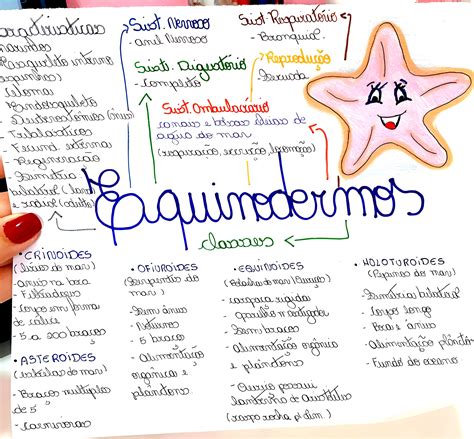 Característicos
marinhos
Esqueleto interno
espinhos
Celoma
- Endoesqueleto
- Deuterostômios (ânus)
- Triblásticos
- Fecund. externa
- Regeneração
- Simetria
bilateral (larva)
radial (adulto)
Sist. Nervoso
- anel Nervoso
Sist. Digestório
- Completo
Sist. Respiratório
- Branquial
Reprodução
- Sexuada
Sist. Ambulacrário
canais e bolsas cheias de
água do mar
(respiração, secreção, locomoção)
Equinodermos
classes
• CRINOIDES
(lírios do mar)
- ânus na boca
- Filtradores
- Corpo em forma
de cálice
- 5 a 200 braços
• ASTEROIDES
(estrelas do mar)
- Braços múltiplos
de 5
- Carnívoras
• OFIUROIDES
(Serpentes do
mar)
- Sem ânus
- Noturnos
- 5 braços
- Alimentação
orgânica e
plânctons
• EQUINOIDES
(Bolacha do mar/Ouriço)
- carapaça rígida
- Sem braços
- Alimentação orgânica
e plânctons
- Ouriço possui
lanterna de Aristóteles
(raspa rocha p/ alim.)
• HOLOTUROIDES
(Pepinos do mar)
- Simetria bilateral
- Corpo longo
- Boca e ânus
- Alimentação plâncton
- Fundo do oceano